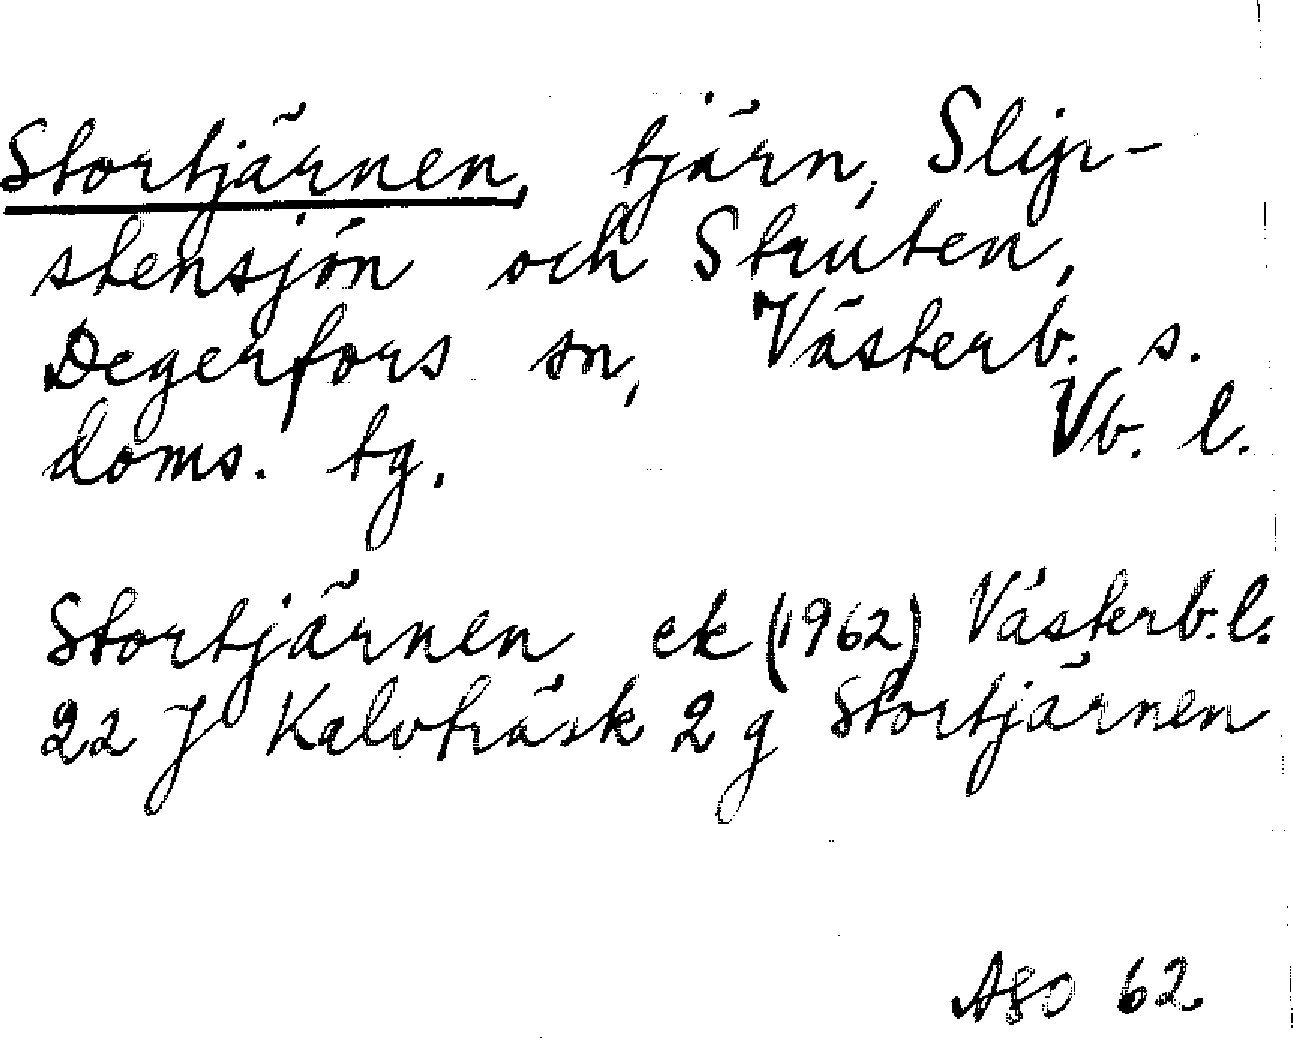 Stortjärnen, tjärn, Slip-
stensjön och Struten,
Degerfors sn, Västerb. s.
doms. tg. Vb. l.
Stortjärnen ek (1962) Västerb. l.
22 J Kalvträsk 2 g Stortjärnen
62